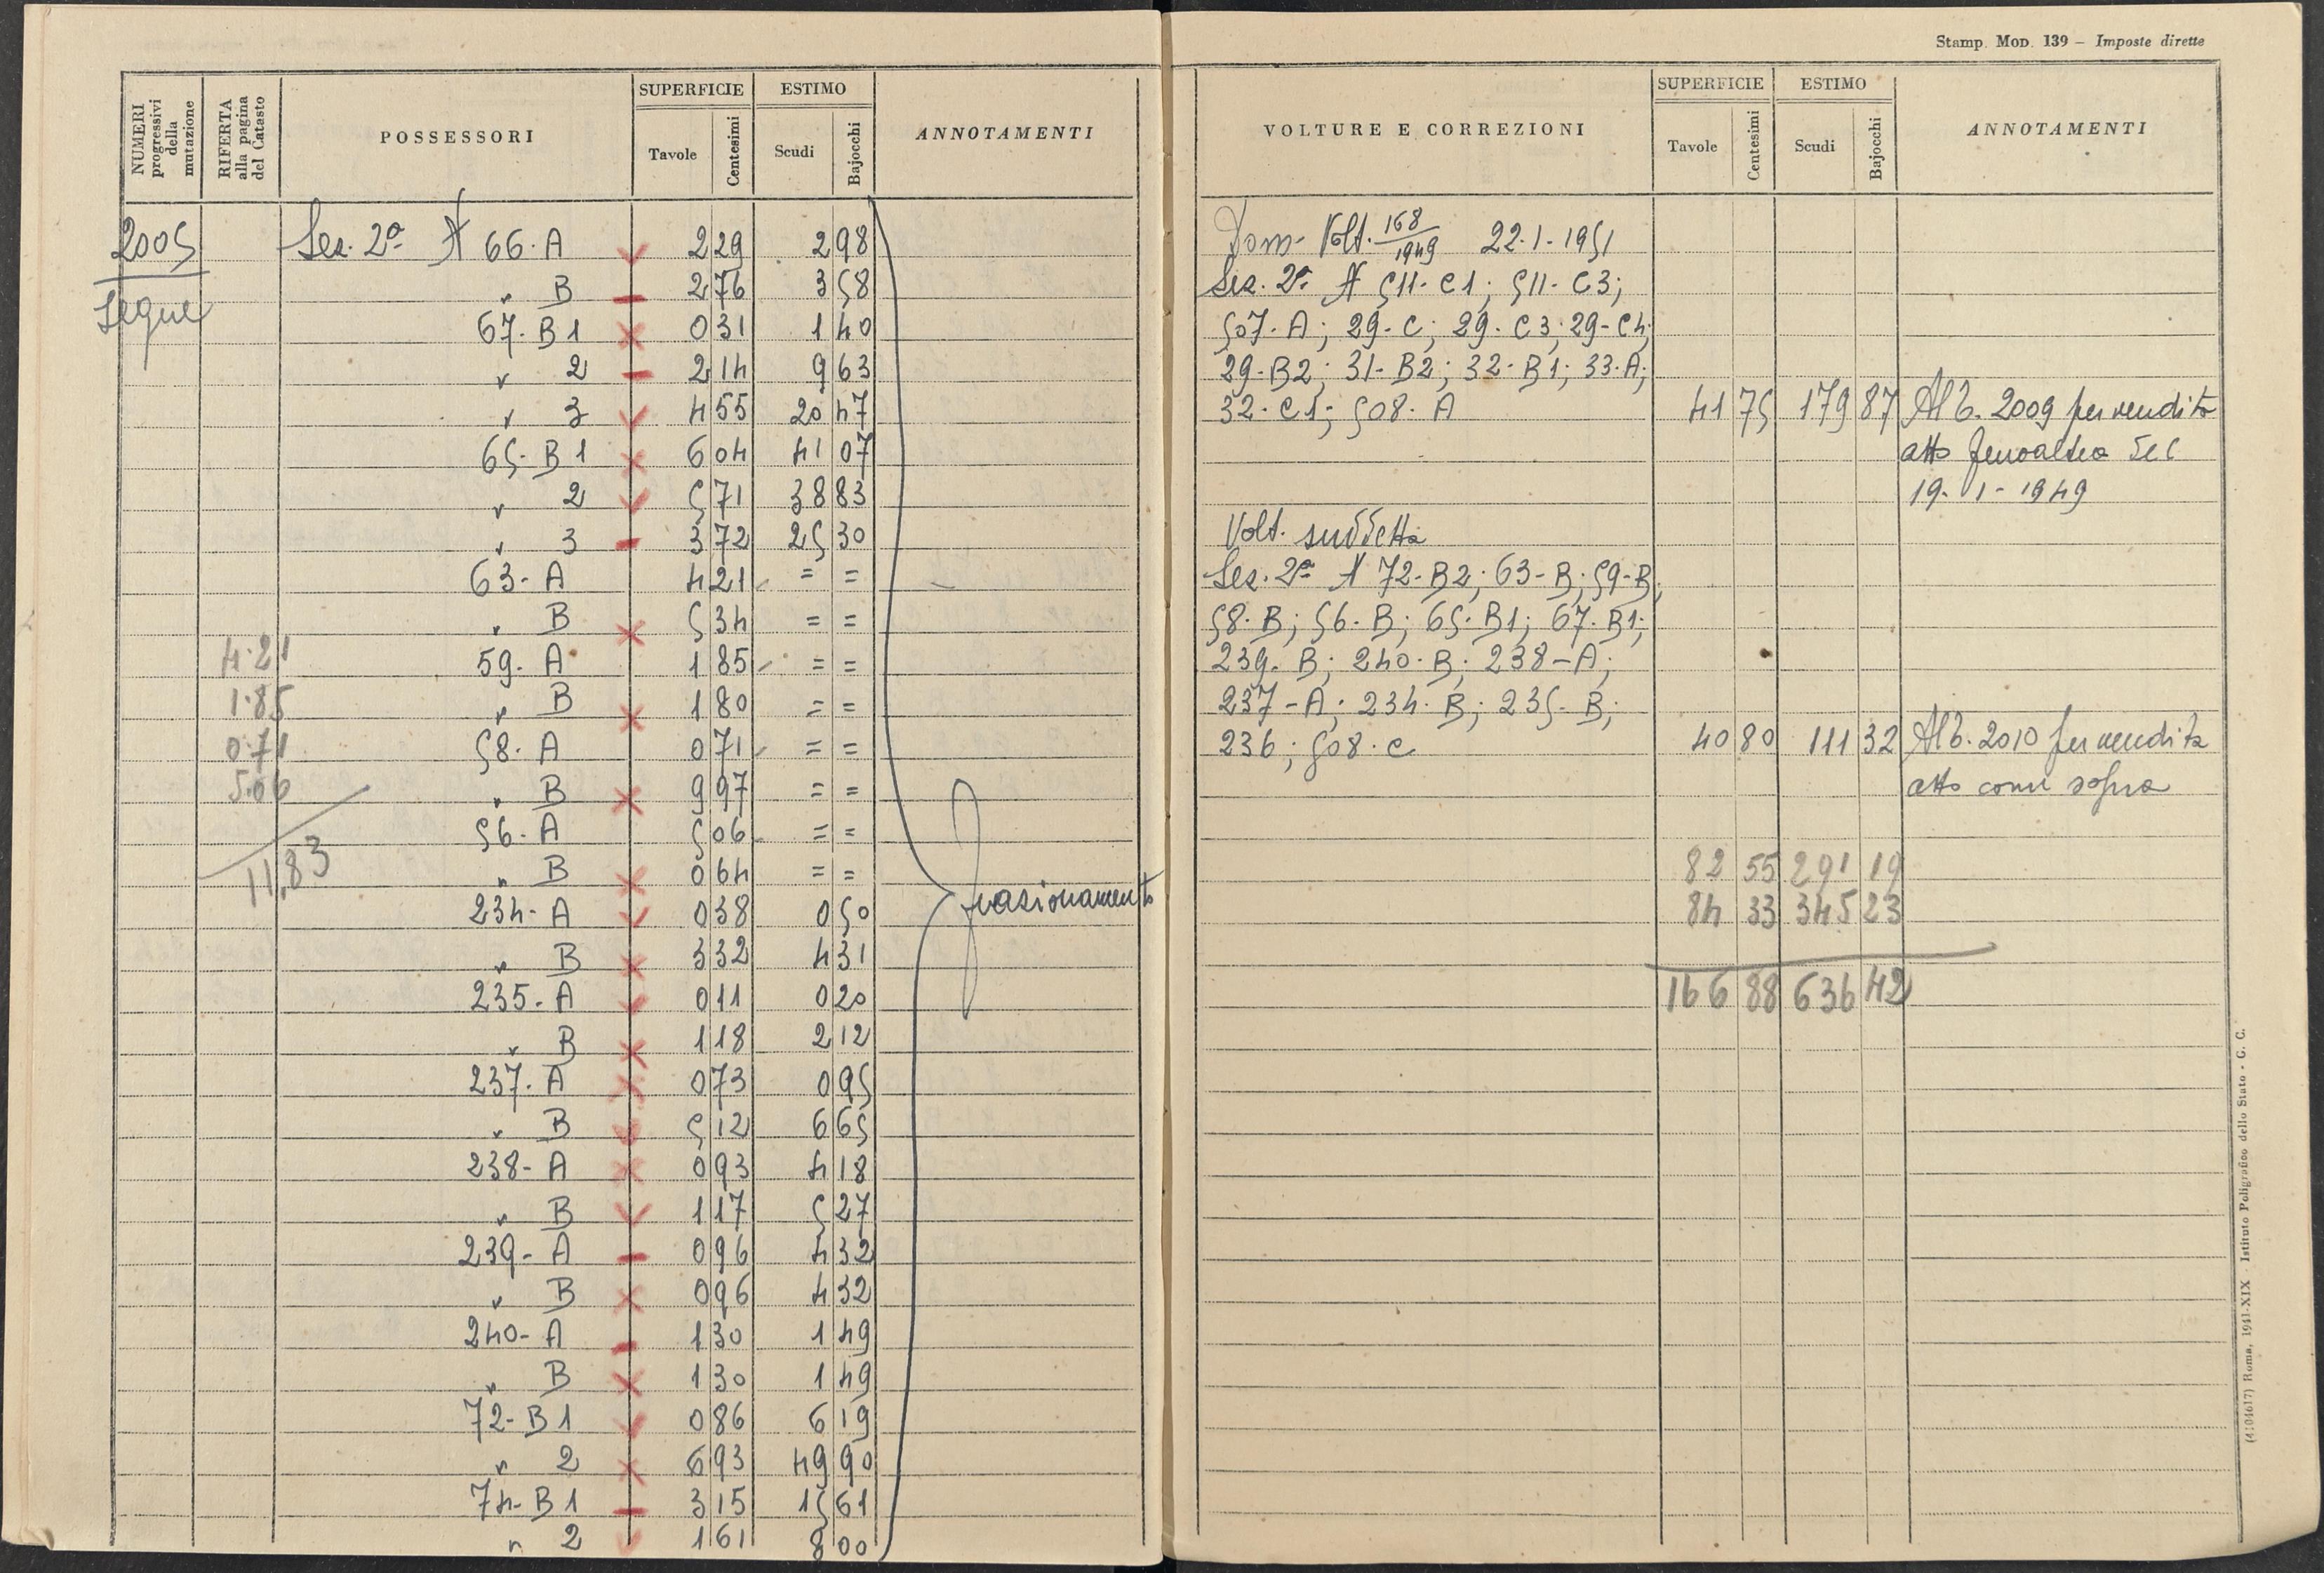 Stamp. Mod. 139 — Imposte dirette
NUMERI progressivi della mutazione
RIFERTA alla pagina del Catasto
POSSESSORI
SUPERFICIE
Tavole
Centesimi
ESTIMO
Scudi
Bajocchi
ANNOTAMENTI
2005 Sez. 2ª N 66-A 2 29 2 98
segue " B 2 76 3 58
67-B1 0 31 1 40
" 2 2 14 9 63
" 3 4 55 20 47
65-B1 6 04 41 07
" 2 5 71 38 83
" 3 3 72 25 30
63-A 4 21 = =
" B 5 34 = =
4.21 59-A 1 85 = =
1.85 " B 1 80 = =
0.71 58-A 0 71 = =
5.06 " B 9 97 = =
56-A 5 06 = =
11,83 " B 0 64 = =
234-A 0 38 0 50
frazionamento
" B 3 32 4 31
235-A 0 11 0 20
" B 1 18 2 12
237-A 0 73 0 95
" B 5 12 6 65
238-A 0 93 4 18
" B 1 17 5 27
239-A 0 96 4 32
" B 0 96 4 32
240-A 1 30 1 49
" B 1 30 1 49
72-B1 0 86 6 19
" 2 6 93 49 90
74-B1 3 15 15 61
" 2 1 61 8 00
VOLTURE E CORREZIONI
SUPERFICIE
Tavole
Centesimi
ESTIMO
Scudi
Bajocchi
ANNOTAMENTI
Dom- Volt. 168/1949 22-1-1951
Sez. 2ª N 511-C1; 511-C3;
507-A; 29-C; 29-C3; 29-C4;
29-B2; 31-B2; 32-B1; 33-A;
32-C1; 508-A 41 75 179 87 All. 2009 per vendita
atto del
19-1-1949
Volt. suddetta
Sez. 2ª N 72-B2; 63-B; 59-B;
58-B; 56-B; 65-B1; 67-B1;
239-B; 240-B; 238-A;
237-A; 234-B; 235-B;
236; 508-C 40 80 111 32 All. 2010 per vendita
atto come sopra
82 55 291 19
84 33 345 23
166 88 636 42
(4104617) Roma, 1941-XIX - Istituto Poligrafico dello Stato - G. C.